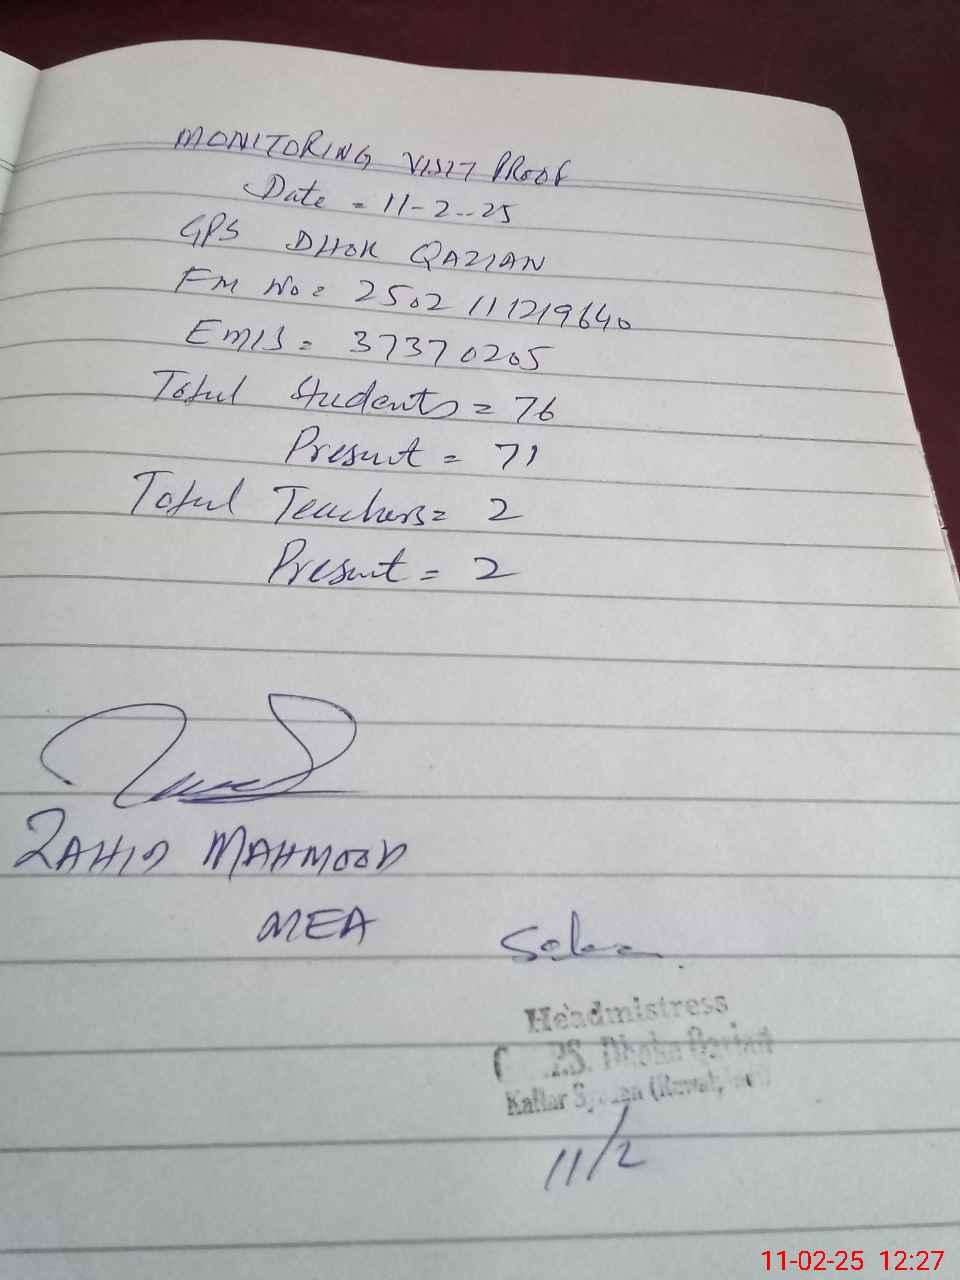 MONITORING VISIT PROOF
Date = 11-2-25
GPS DHOK QAZIAN
FM No = 2502111219640
EMIS = 37370205
Total Students = 76
Present = 71
Total Teachers = 2
Present = 2
ZAHID MAHMOOD
MEA
Headmistress
P.S. Dhoke
Kallar
11/2
11-02-25 12:27